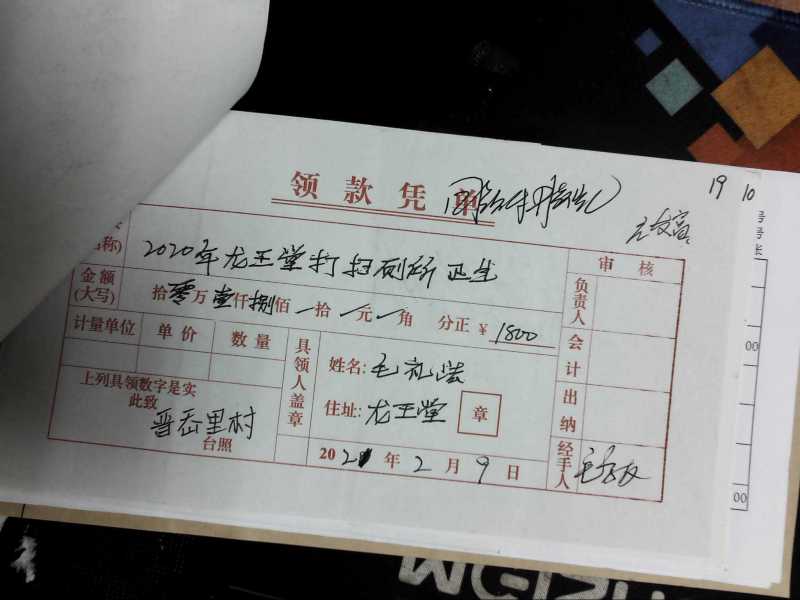 19 10
领款凭单
名称)
2020年龙王堂打扫厕所卫生
审核
金额
(大写)
拾零万壹仟捌佰 拾 元 角 分正 ¥ 1800
负责人
计量单位 单价 数量
具领人盖章
姓名:毛礼法
会计
上列具领数字是实
此致
住址:龙王堂 章
出纳
晋岙里村
台照
2021年2月9日
经手人
号
号
张
00
00